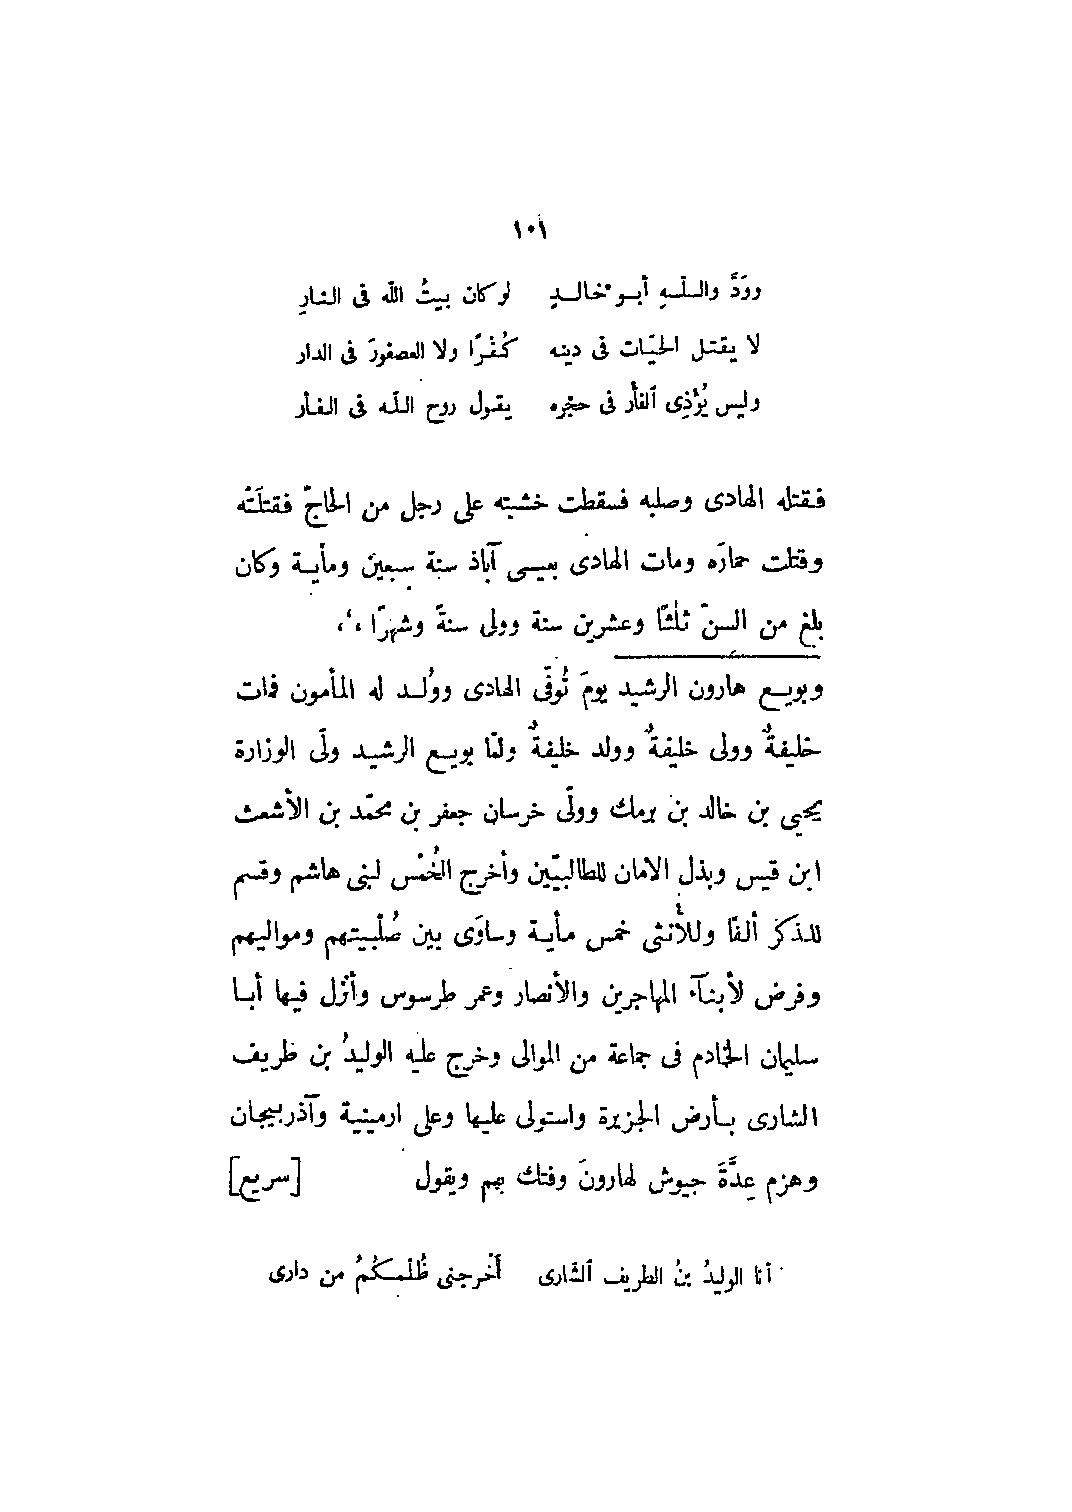 ١٠١
وودَّ والـلّـهِ أبـو خالـدٍ لو كان بيتُ الله فى النـارِ
لا يقتل الحيّات فى دينه كُفْرًا ولا العصفورَ فى الدار
وليس يُؤْذِى ٱلفأر فى حجره يقول روح اللّه فى الفأر
فقتله الهادى وصلبه فسقطت خشبته على رجل من الحاجّ فقتلَتْه
وقتلت حمارَه ومات الهادى بعيسى آباذ سنة سبعين ومأية وكان
بلغ من السنّ ثلثًا وعشرين سنة وولى سنةً وشهرًا ،'،
وبويع هارون الرشيد يومَ تُوفّى الهادى ووُلد له المأمون فمات
خليفةٌ وولى خليفةٌ وولد خليفةٌ ولمّا بويع الرشيد ولّى الوزارة
يحيى بن خالد بن برمك وولّى خرسان جعفر بن محمّد بن الأشعث
ابن قيس وبذل الامان للطالبيّين وأخرج الخُمْس لبنى هاشم وقسم
للذكر ألفًا وللأُنثى خمس مأية وساوَى بين صُلْبيتهم ومواليهم
وفرض لأبنآء المهاجرين والأنصار وعمر طرسوس وأنزل فيها أبا
سليمان الخادم فى جماعة من الموالى وخرج عليه الوليدُ بن ظريف
الشارى بأرض الجزيرة واستولى عليها وعلى ارمينية وآذربيجان
وهزم عِدَّةَ جيوش لهارونَ وفتك بهم ويقول [سريع]
أنا الوليدُ بنُ الطريف ٱلشّارى أَخرجنى ظُلْمكُمُ من دارى